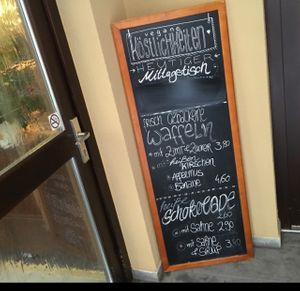 vegane
Köstlichkeiten
HEUTIGER
Mittagstisch
frisch GEBACKENE
Waffeln
mit Zimt & Zucker 3,80
mit heißen
KIRSCHEN
+ APFELMUS
+ Banane 4,60
heiße
SchokoLADE
2,60
mit Sahne 2,90
mit Sahne
& Sirup 3,40